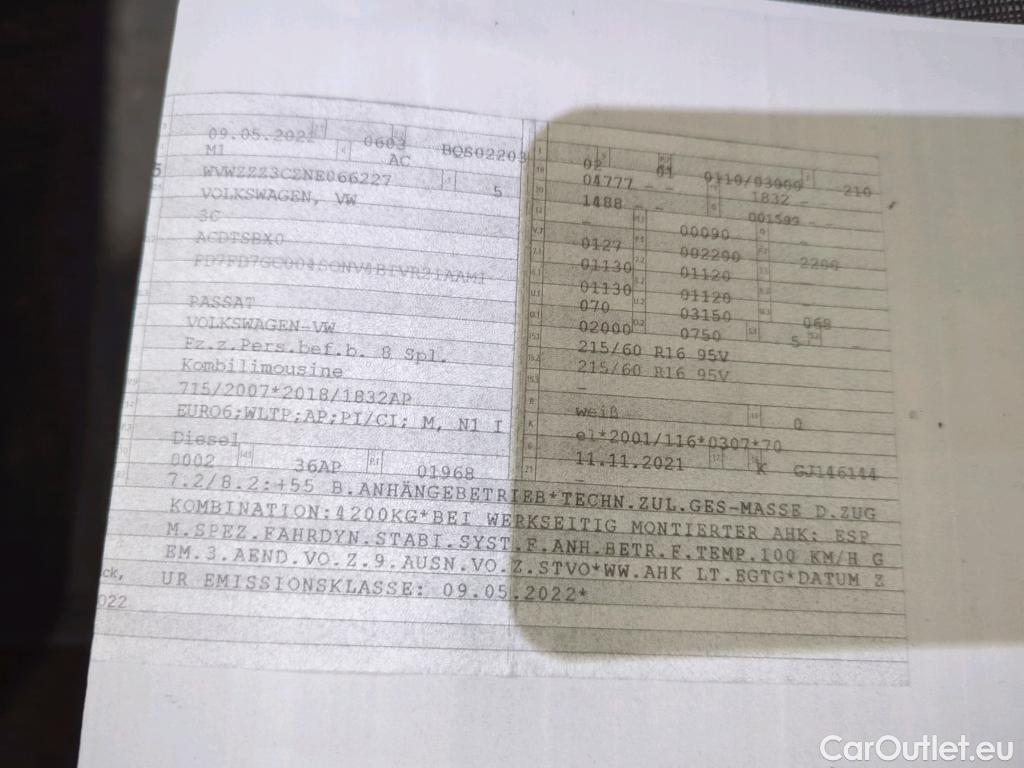 09.05.2022 0603 BQS02203
M1 AC
WVWZZZ3CZNE066227 5
VOLKSWAGEN, VW
3C
ACDTSBX0
PASSAT
VOLKSWAGEN-VW
Fz.z.Pers.bef.b. 8 Spl.
Kombilimousine
715/2007*2018/1832AP
EURO6;WLTP;AP;PI/CI; M, N1 I
Diesel
0002 36AP 01968
02 01 0110/03000 210
04777 – – 1832 –
1488 – – 001593 –
– 00090 –
0127 002290 2200
01130 01120 –
01130 01120 –
070 03150 068
02000 0750 5 –
215/60 R16 95V
215/60 R16 95V
–
weiß 0
e1*2001/116*0307*70
11.11.2021 K GJ146144
–
7.2/8.2:+55 B.ANHÄNGEBETRIEB*TECHN.ZUL.GES-MASSE D.ZUG
KOMBINATION:4200KG*BEI WERKSEITIG MONTIERTER AHK: ESP
M.SPEZ.FAHRDYN.STABI.SYST.F.ANH.BETR.F.TEMP.100 KM/H G
EM.3.AEND.VO.Z.9.AUSN.VO.Z.STVO*WW.AHK LT.EGTG*DATUM Z
UR EMISSIONSKLASSE: 09.05.2022*
ck,
022
CarOutlet.eu